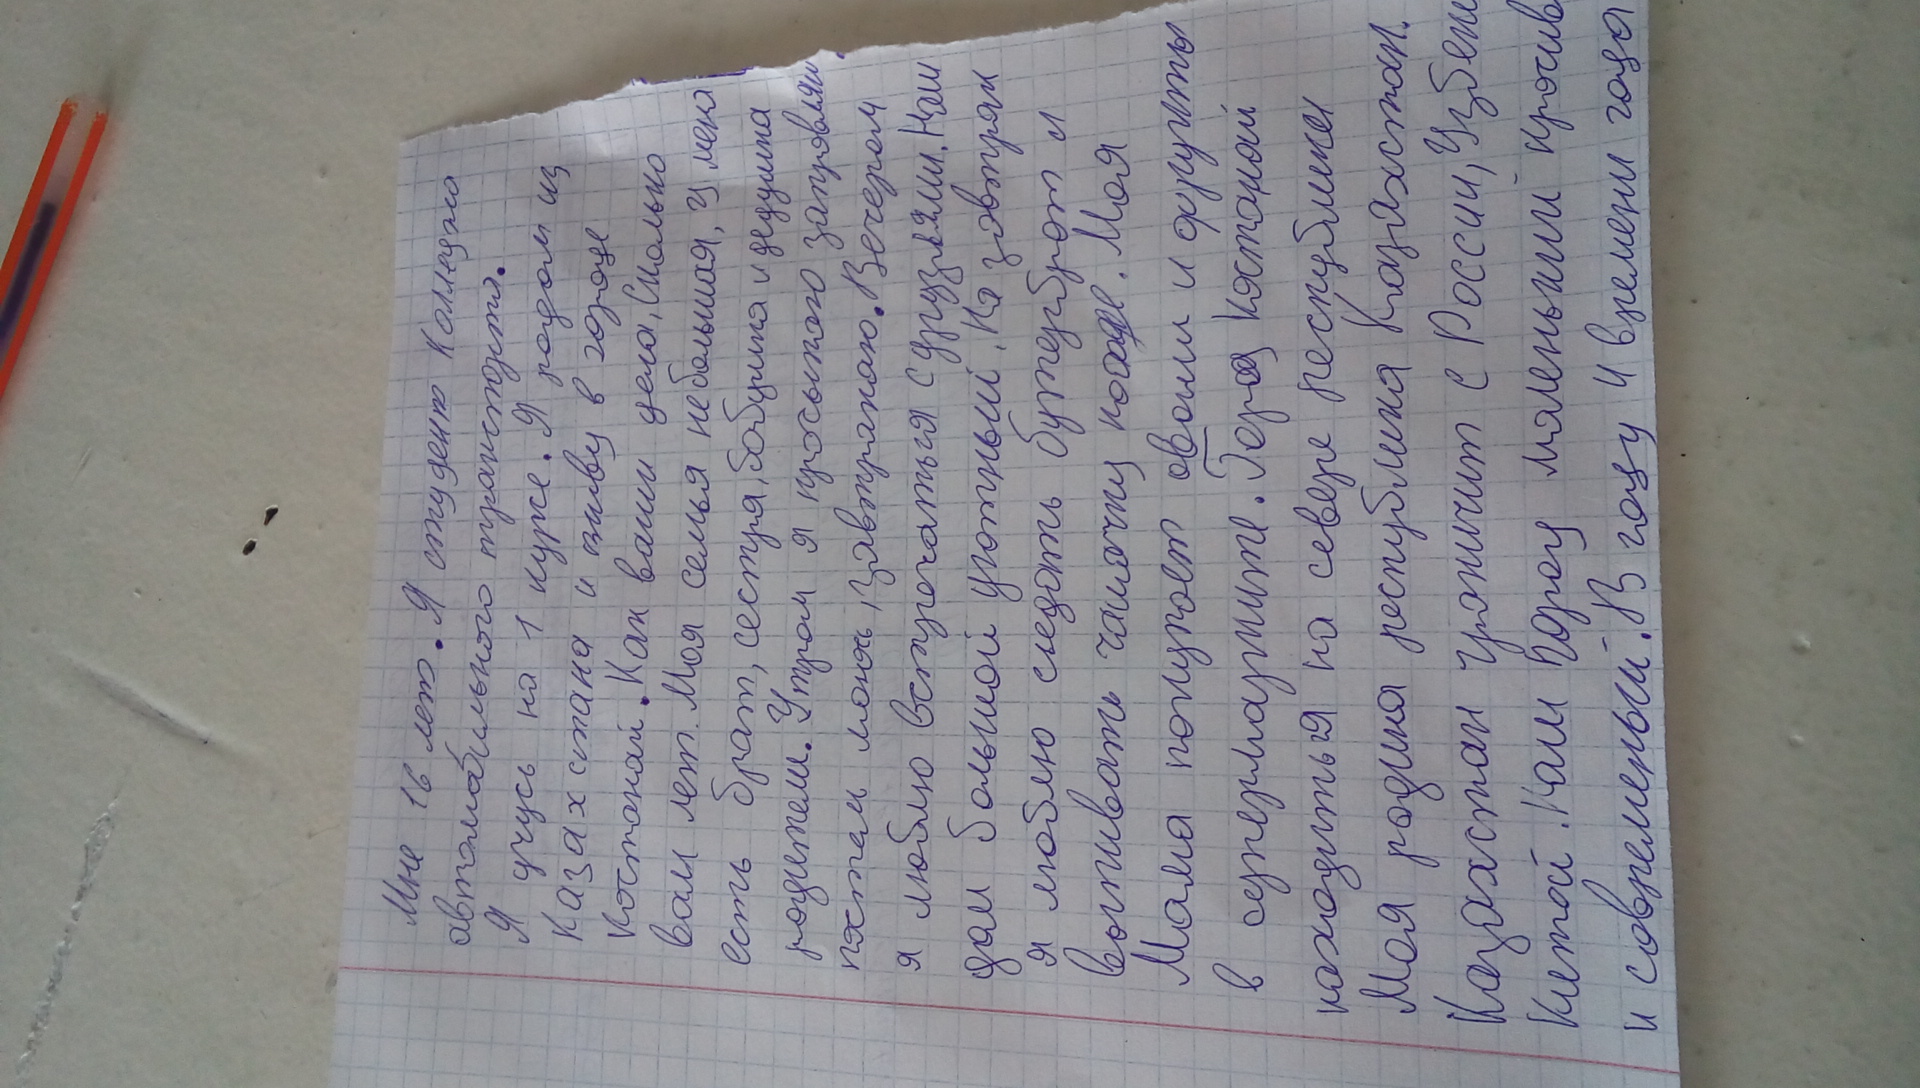 Мне 16 лет. Я студент Колледжа
автомобильного транспорта.
Я учусь на 1 курсе. Я родом из
Казахстана и живу в городе
Костанай. Как ваши дела, Сколько
вам лет. Моя семья небольшая, у меня
есть брат, сестра, бабушка и дедушка
родители. Утром я просыпаю заправляю
постель моюь, завтракаю. Вечером
я люблю встречаться с друзьями. Наш
дом большой уютный. На завтрак
я люблю съедать бутерброт и
выпивать чашечку кофе. Моя
Мама покупает овощи и фрукты
в супермаркете. Город Костанай
находиться на севере республики
Моя родина республика Казахстан.
Казахстан граничит с Россий, Узбеки
Китай. Наш город маленький красив
и современый. В году 4 времени года